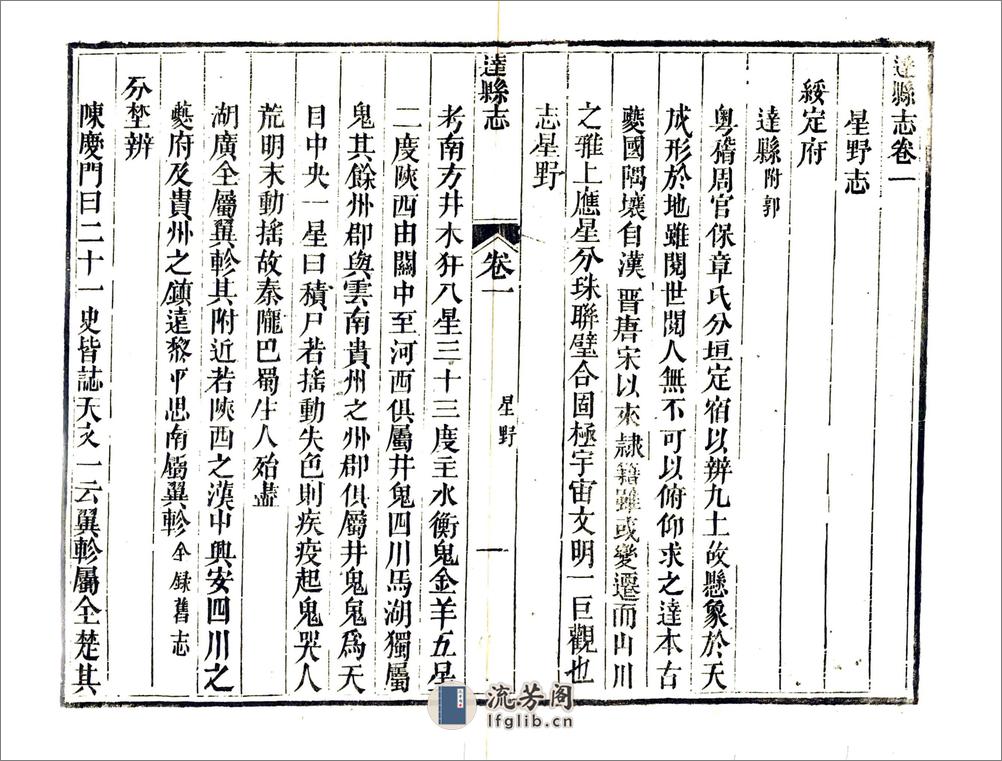 達縣志卷一
星野志
綏定府
達縣附郭
粵稽周官保章氏分垣定宿以辨九土故懸象於天
成形於地雖閱世閱人無不可以俯仰求之達本古
夔國隅壤自漢晉唐宋以來隸籍雖或變遷而山川
之雅上應星分珠聯璧合固極宇宙文明一巨觀也
志星野
達縣志
卷一
星野
一
考南方井木犴八星三十三度主水衡鬼金羊五星
二度陝西由關中至河西俱屬井鬼四川馬湖獨屬
鬼其餘州郡與雲南貴州之州郡俱屬井鬼鬼為天
目中央一星曰積尸若搖動失色則疾疫起鬼哭人
荒明末動搖故秦隴巴蜀生人殆盡
湖廣全屬翼軫其附近若陝西之漢中興安四川之
夔府及貴州之鎮遠黎平思南屬翼軫全錄舊志
分埜辨
陳慶門曰二十一史皆誌天文一云翼軫屬全楚其
流芳阁
lfglib.cn